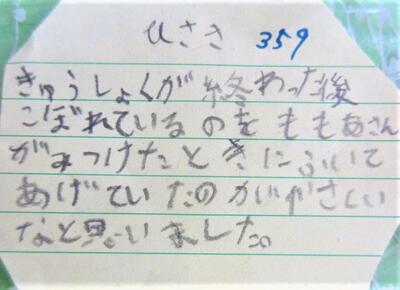 ひさき 359
きゅうしょくが終わった後
こぼれているのをももあさん
がみつけたときにふいて
あげていたのがやさしい
なと思いました。